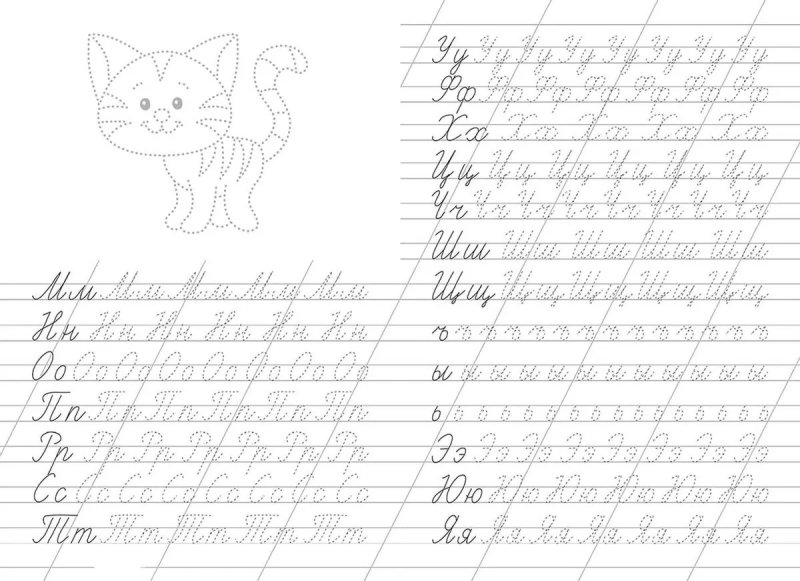 Мм Мм Мм Мм Мм
Нн Нн Нн Нн Нн Нн
Оо Оо Оо Оо Оо Оо Оо Оо
Пп Пп Пп Пп Пп Пп
Рр Рр Рр Рр Рр Рр Рр
Сс Сс Сс Сс Сс Сс Сс Сс
Тт Тт Тт Тт Тт
Уу Уу Уу Уу Уу Уу Уу Уу
Фф Фф Фф Фф Фф Фф Фф
Хх Хх Хх Хх Хх
Цц Цц Цц Цц Цц Цц
Чч Чч Чч Чч Чч Чч Чч Чч
Шш Шш Шш Шш Шш
Щщ Щщ Щщ Щщ Щщ
ъ ъ ъ ъ ъ ъ ъ ъ ъ ъ ъ ъ ъ ъ
ы ы ы ы ы ы ы ы ы ы ы ы
ь ь ь ь ь ь ь ь ь ь ь ь ь ь ь
Ээ Ээ Ээ Ээ Ээ Ээ Ээ Ээ
Юю Юю Юю Юю Юю Юю
Яя Яя Яя Яя Яя Яя Яя Яя